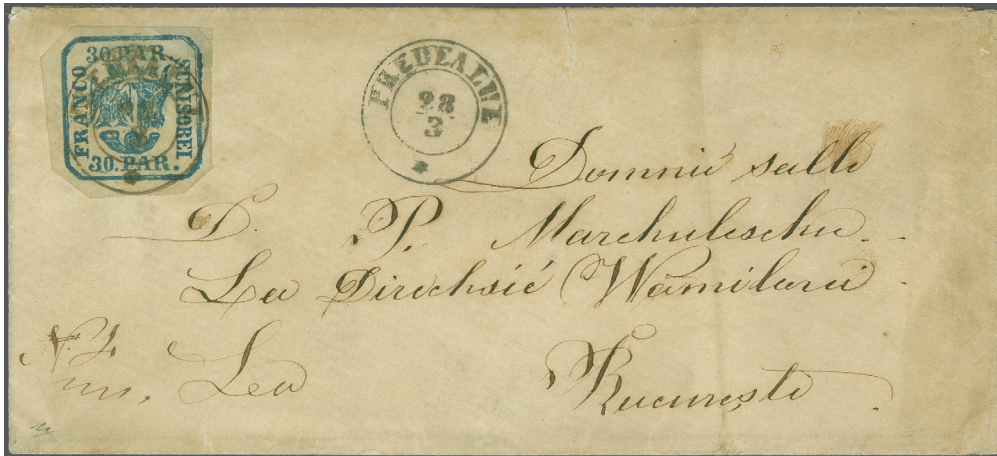 30.PAR.
FRANCO
SCRISOREI
30.PAR.
PREDEALUL
28
3
Domnii salle
D. P. Marchuleschu
La Direchsié Wamilorui
La Bucureşti